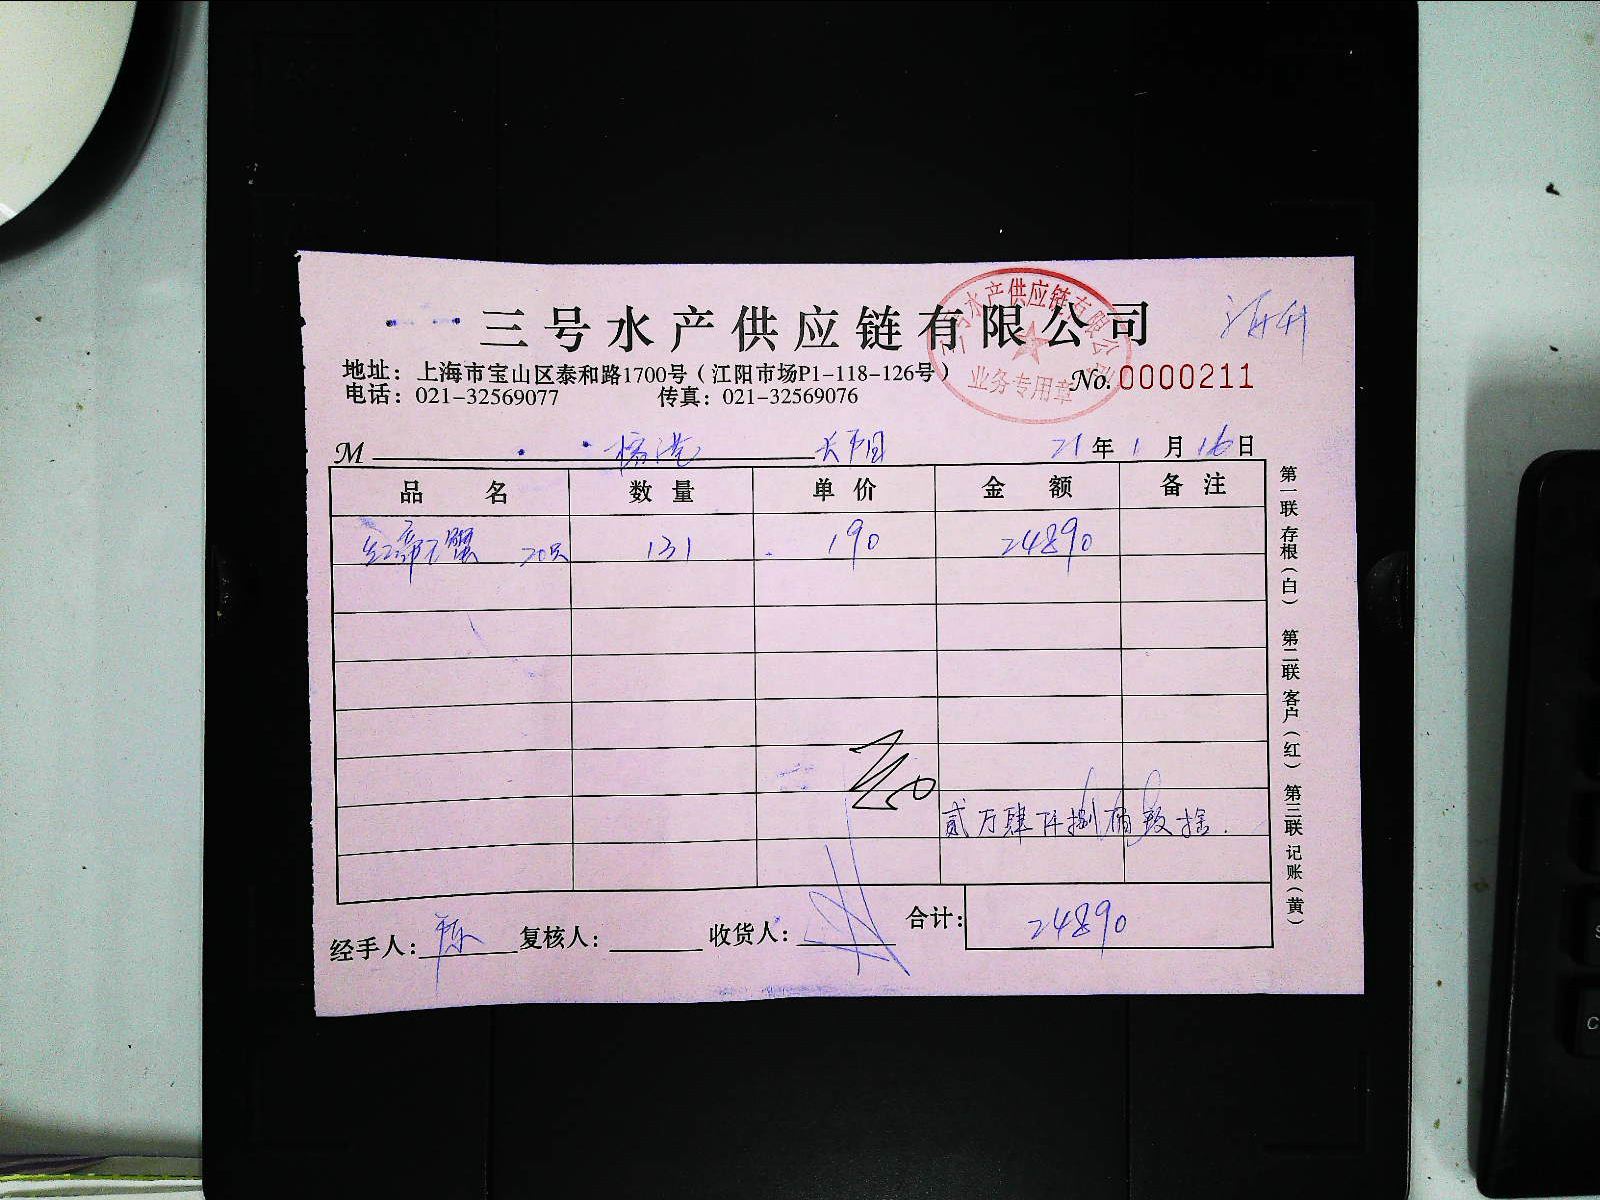 三号水产供应链有限公司
三号水产供应链有限公司
业务专用章
地址：上海市宝山区泰和路1700号（江阳市场P1-118-126号）
No. 0000211
电话：021-32569077 传真：021-32569076
M 21年1月16日
品名 数量 单价 金额 备注
蟹 20只 131 190 24890
贰万肆仟捌佰玖拾.
合计：24890
经手人：陈 复核人： 收货人：
第一联 存根（白） 第二联 客户（红） 第三联 记账（黄）